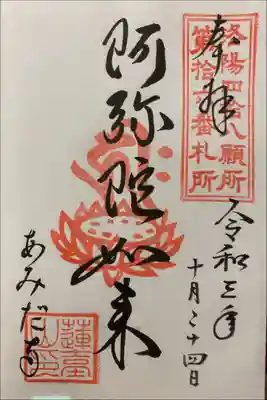 奉拝
洛陽四拾八願所
第拾六番札所
令和三年
十月二十四日
阿弥陀如来
あみだ寺
蓮臺山印